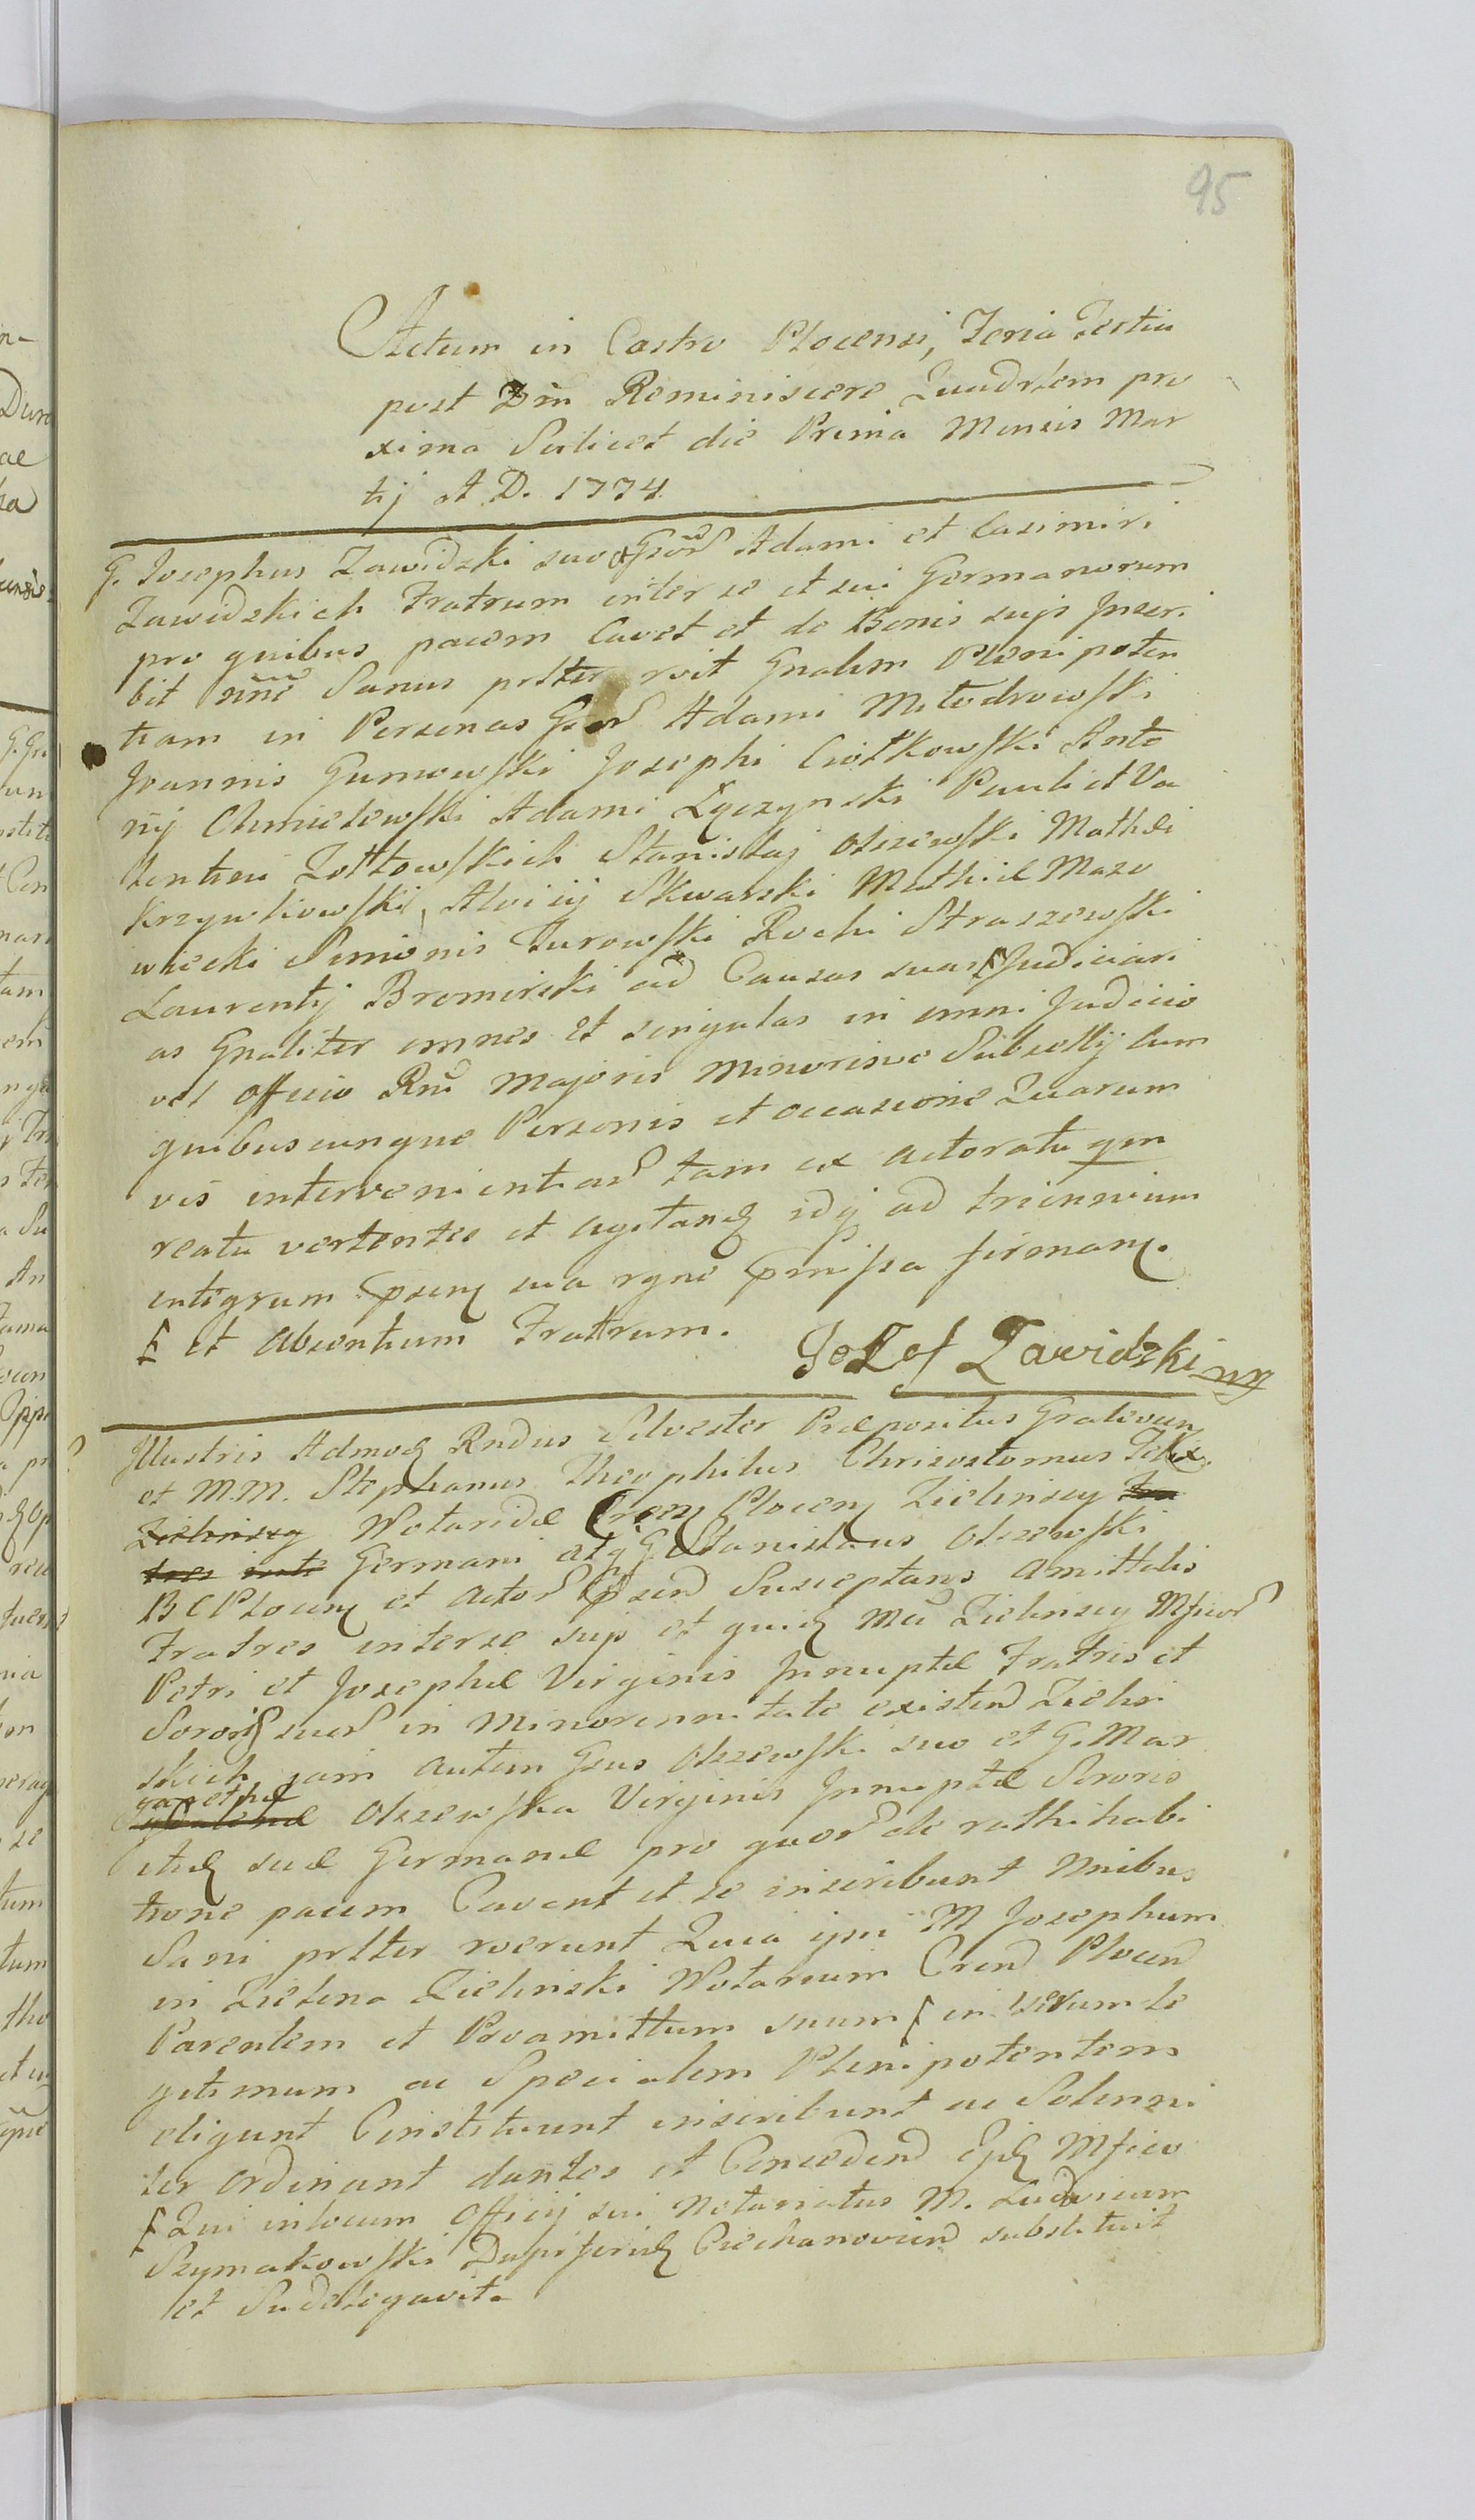 95
Actum in Castro Plocensi, Feria Tertia
post Dm̃ Reminiscere Quadrlem pro
xima Scilicet die Prima Mensis Mar
tij A D. 1774.
G. Josephus Zawidzki suo et Gsor Adami et Casimiri
Zawidzkich Fratrum inter se et sui Germanorum
pro quibus pacem Cavet et de Bonis sujs Inscri
bit Sanus prltter rvit Gnalem Plenipoten
tiam in Personas Gsor Adami Miłodrowski
Joannis Gumowski Josephi Ciołkowski Anto
nij Chmielewski Adami Łączynski Pauli et Va
lentini Zołtowskich Stanislaj Olszewski Mathei
Krzywkowski, Aloiij Skwarski Mathiæ Mazo
wiecki Simionis Turowski Rochi Straszewski
Laurentij Bromirski ad Causas suas Judiciari
as Gnaliter omnes et singulas in omni Judicio
vel officio Rni Majoris Minorisve Subsellij Cum
quibuscunque Personis et occasione Quarum
vis intervenientiar tam ex actoratu qm
reatu vertentes et agitand idq ad triennium
integrum psenq sua rgne pmissa firmanq.
et absentium Fratrum.
Jozef Zawidzki mp
Illustris Admodq Rndus Silvester Præpositus Gralevien
et M.M. Stephanus Theophilus Chrisostomus Felix
Zielinscy Notaridæ Crenq Plocenq Zielinscy Fra
tres inte Germani atq G. Stanislaus Olszewski
B C Plocenq et actor psend Susceptans Amittelis
Fratres interse sup et quidq MM Zielinscy Mficor
Petri et Josephæ Virginis Innuptæ Fratris et
Sororisq suar in Minorennitate existend Zielin
skich jam autem Gsus Olszewski suo et G. Mar
garethæ
Olszewska Virginis Innuptæ Sororis
itidq suæ Germanæ pro quor de rathihabi
tione pacem Cavent et se inscribunt Mnibus
Sani prltter rverunt Quia ipsi M Josephum
in Zielona Zielinski Notarium Crend Plocend
Parentem et Proamittum suum in Verum le
gitimum ac Specialem Plenipotentem
eligunt Constituunt inscribunt ac Solenni
ter ordinant dantes et Concedend Ejdq Mfico
Qui in locum Officij sui Notariatus M. Ludvicum
Szymakowski Dapiferidq Ciechanoviend substituit
et Subdelegavit.